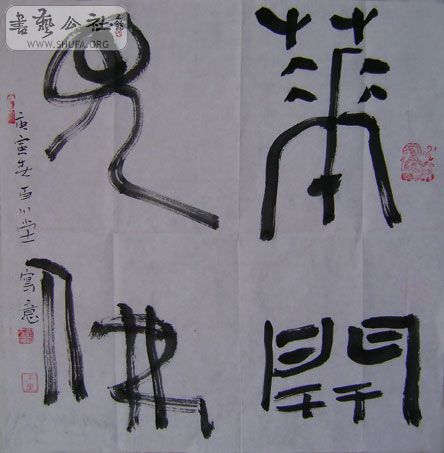 書藝公社
WWW.SHUFA.ORG
華開
見佛
庚寅春 川堂 寫意